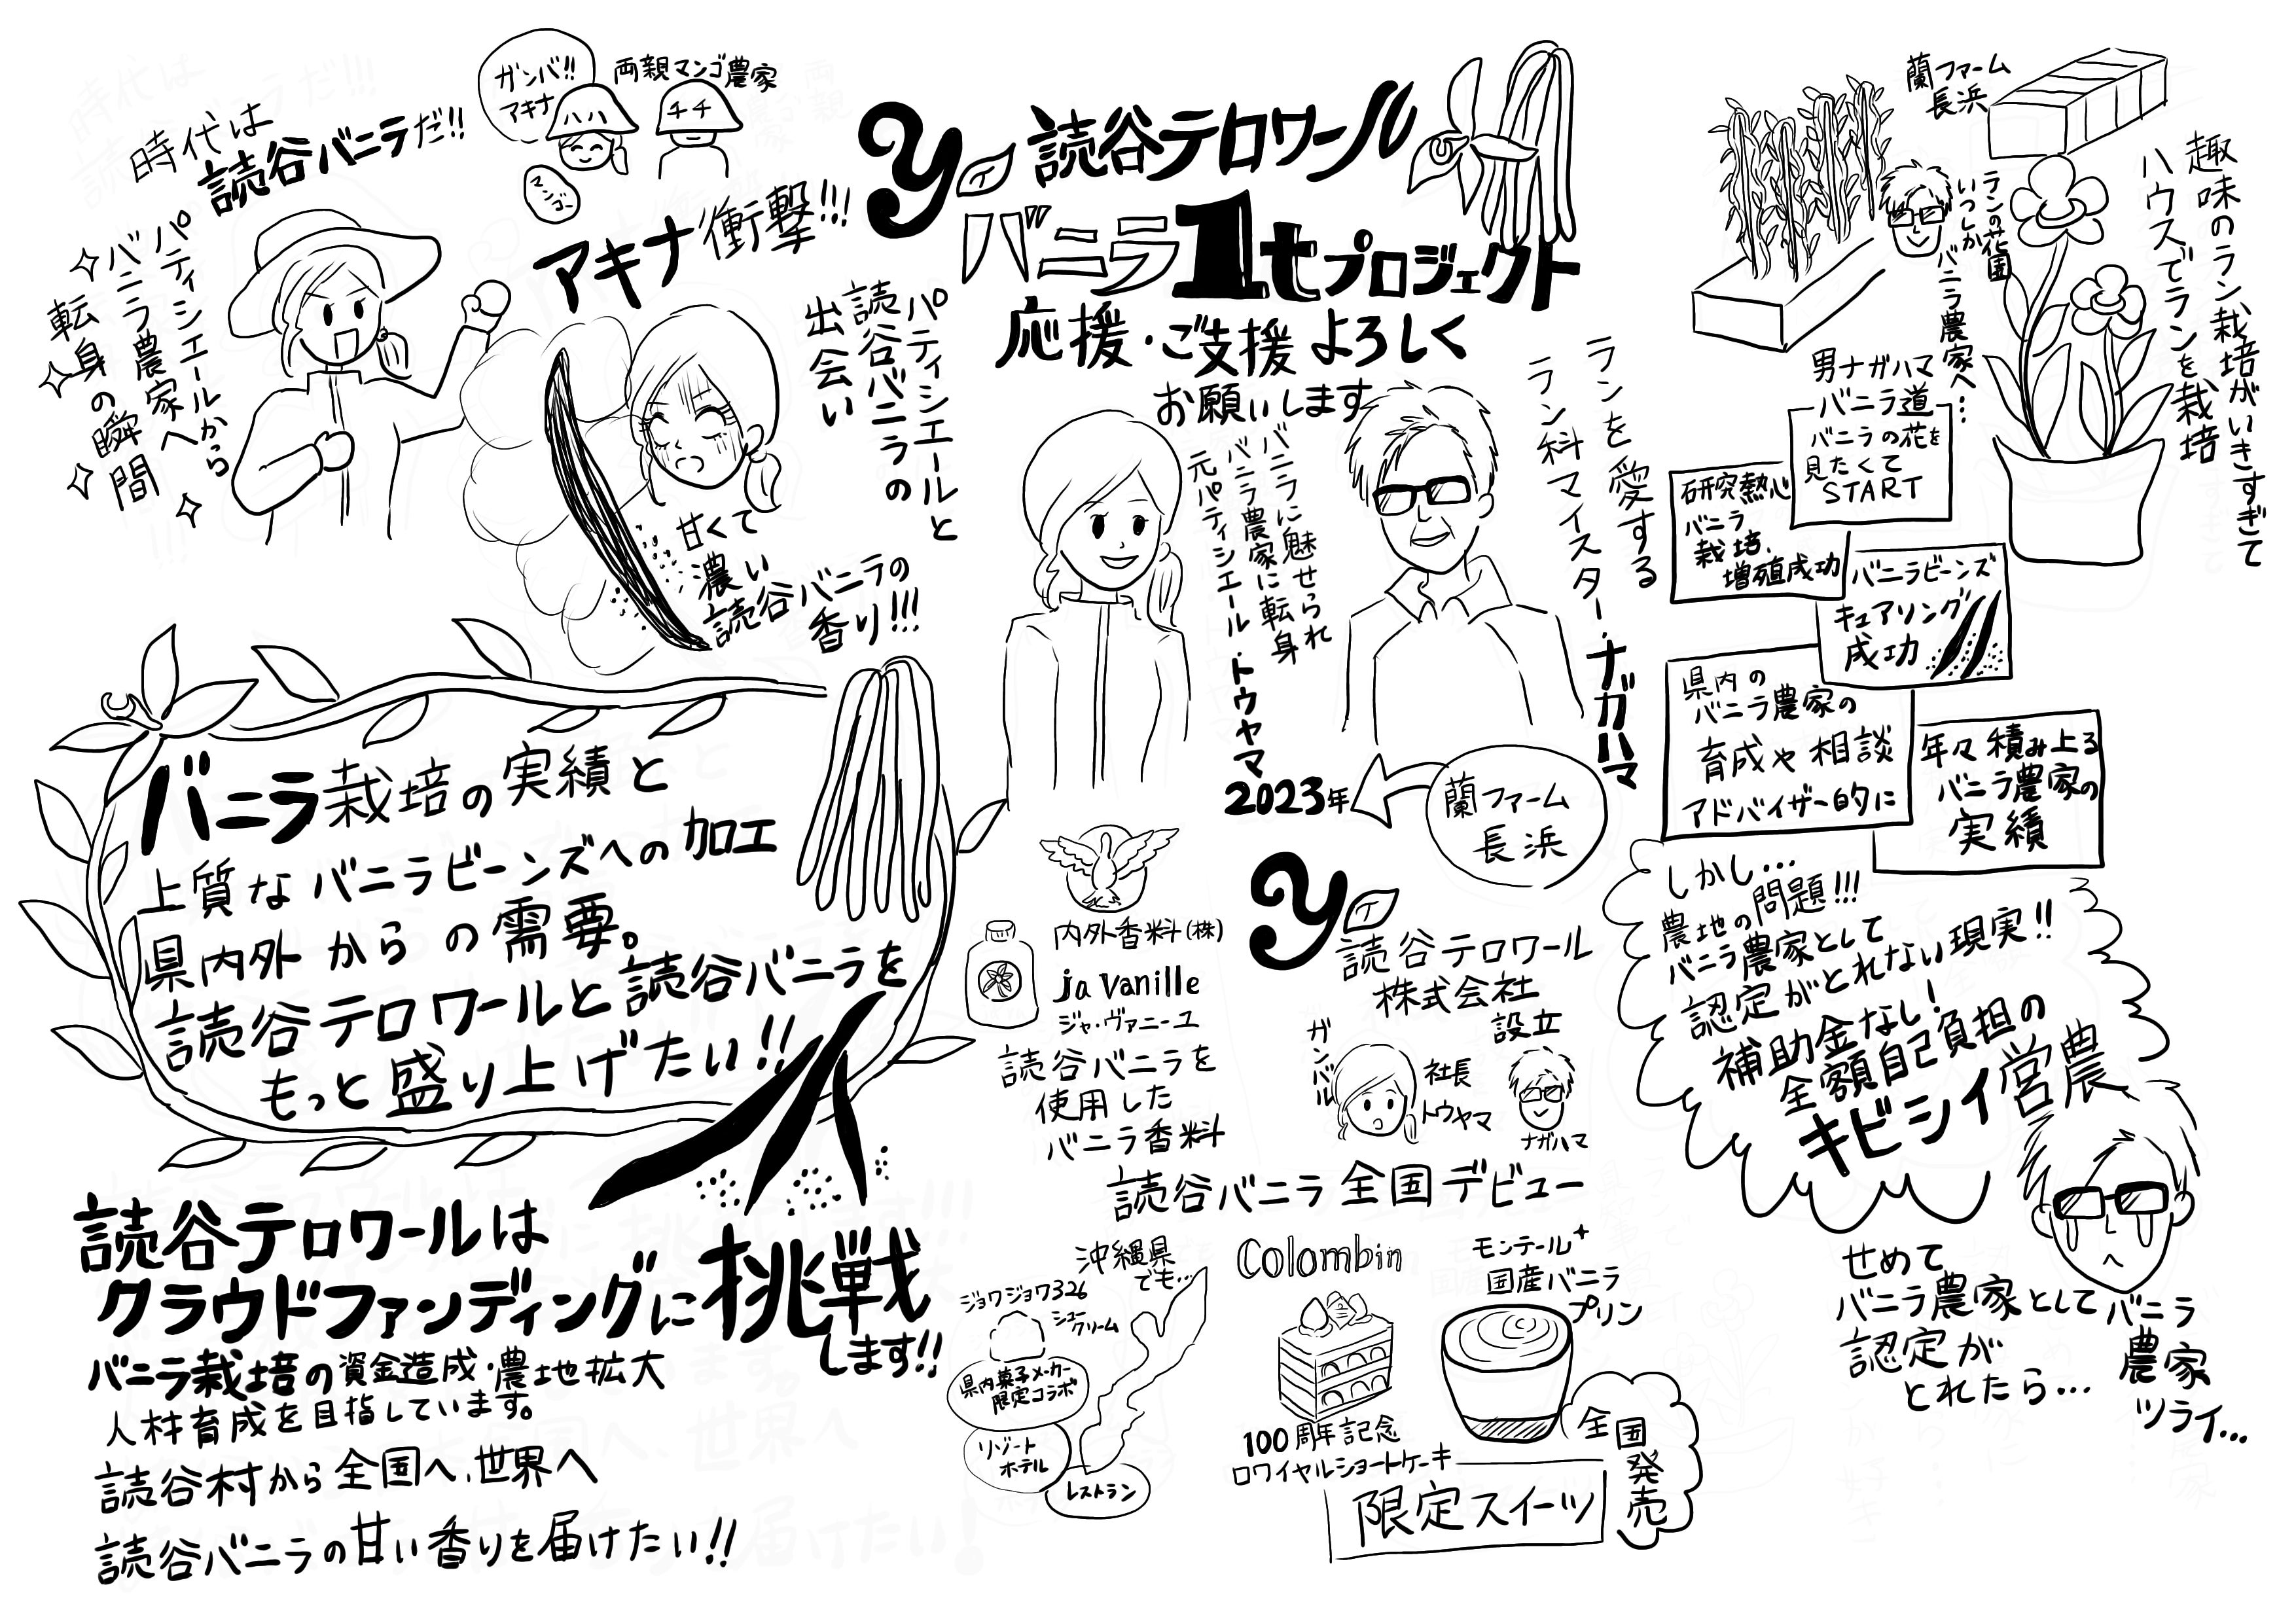 読谷テロワール
バニラ1tプロジェクト
応援・ご支援よろしく
お願いします
ランを愛する
ラン科マイスター・ナガハマ
バニラに魅せられ
バニラ農家に転身
元パティシエール・トウヤマ
蘭ファーム
長浜
趣味のラン栽培がいきすぎて
ハウスでランを栽培
ランの花園
いつしかバニラ農家へ…
男ナガハマ
バニラ道
バニラの花を
見たくて
START
研究熱心
バニラ
栽培、
増殖成功
バニラビーンズ
キュアリング
成功
県内の
バニラ農家の
育成や相談
アドバイザー的に
年々積み上る
バニラ農家の
実績
しかし…
農地の問題!!!
バニラ農家として
認定がとれない現実!!
補助金なし!
全額自己負担の
キビシイ営農
せめて
バニラ農家として
認定が
とれたら…
バニラ
農家
ツライ…
2023年
蘭ファーム
長浜
y
読谷テロワール
株式会社
設立
ガンバル
社長
トウヤマ
ナガハマ
内外香料(株)
ja vanille
ジャ・ヴァニーユ
読谷バニラを
使用した
バニラ香料
読谷バニラ全国デビュー
Colombin
100周年記念
ロワイヤルショートケーキ
モンテール+
国産バニラ
プリン
限定スイーツ
全国発売
沖縄県
でも…
ジョワジョワ326
シュー
クリーム
県内菓子メーカー
限定コラボ
リゾート
ホテル
レストラン
ガンバ!!
アキナ
両親マンゴ農家
ハハ
チチ
マンゴー
アキナ衝撃!!!
パティシエールと
読谷バニラの
出会い
甘くて
濃い
読谷バニラの
香り!!!
時代は
読谷バニラだ!!
パティシエールから
バニラ農家へ
転身の瞬間
バニラ栽培の実績と
上質なバニラビーンズへの加工
県内外からの需要。
読谷テロワールと読谷バニラを
もっと盛り上げたい!!
読谷テロワールは
クラウドファンディングに挑戦
します!!
バニラ栽培の資金造成・農地拡大
人材育成を目指しています。
読谷村から全国へ、世界へ
読谷バニラの甘い香りを届けたい!!